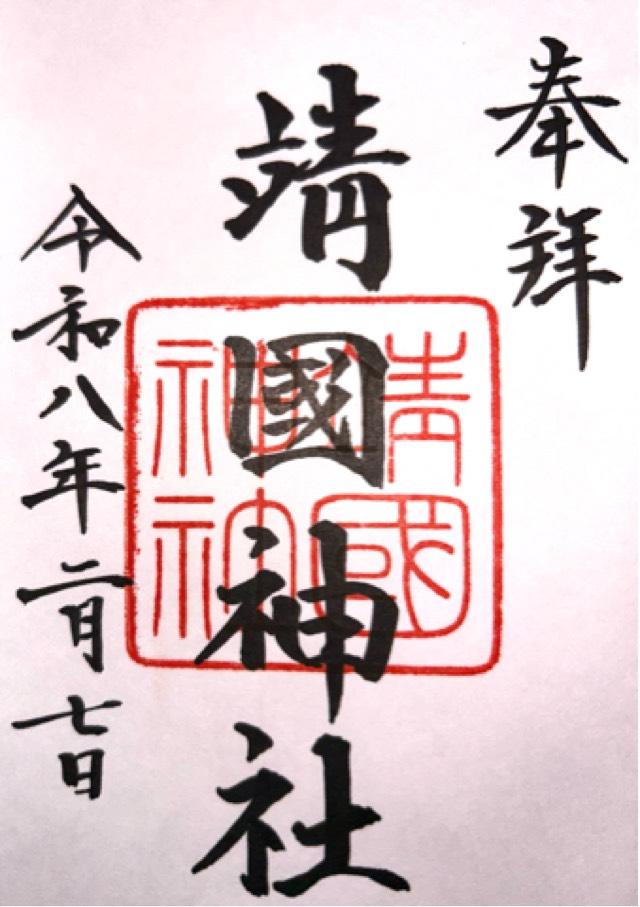 奉拝
靖國神社
靖國
神社
令和八年二月七日